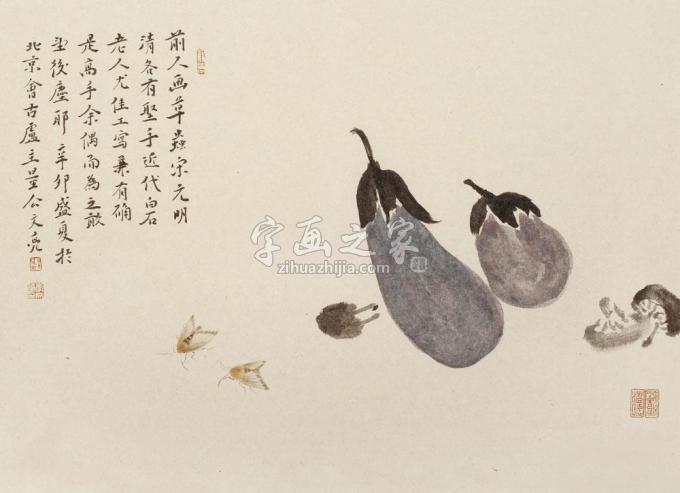 前人画草蟲宋元明
清各有聖手近代白石
老人尤佳工寫兼有确
是高手余偶而為之敢
望後塵耶辛卯盛夏於
北京會古盧主星公文亮
字画之家
zihuazhijia.com